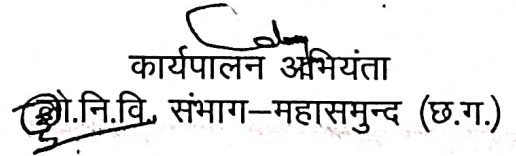 कार्यपालन अभियंता
लो.नि.वि. संभाग–महासमुन्द (छ.ग.)